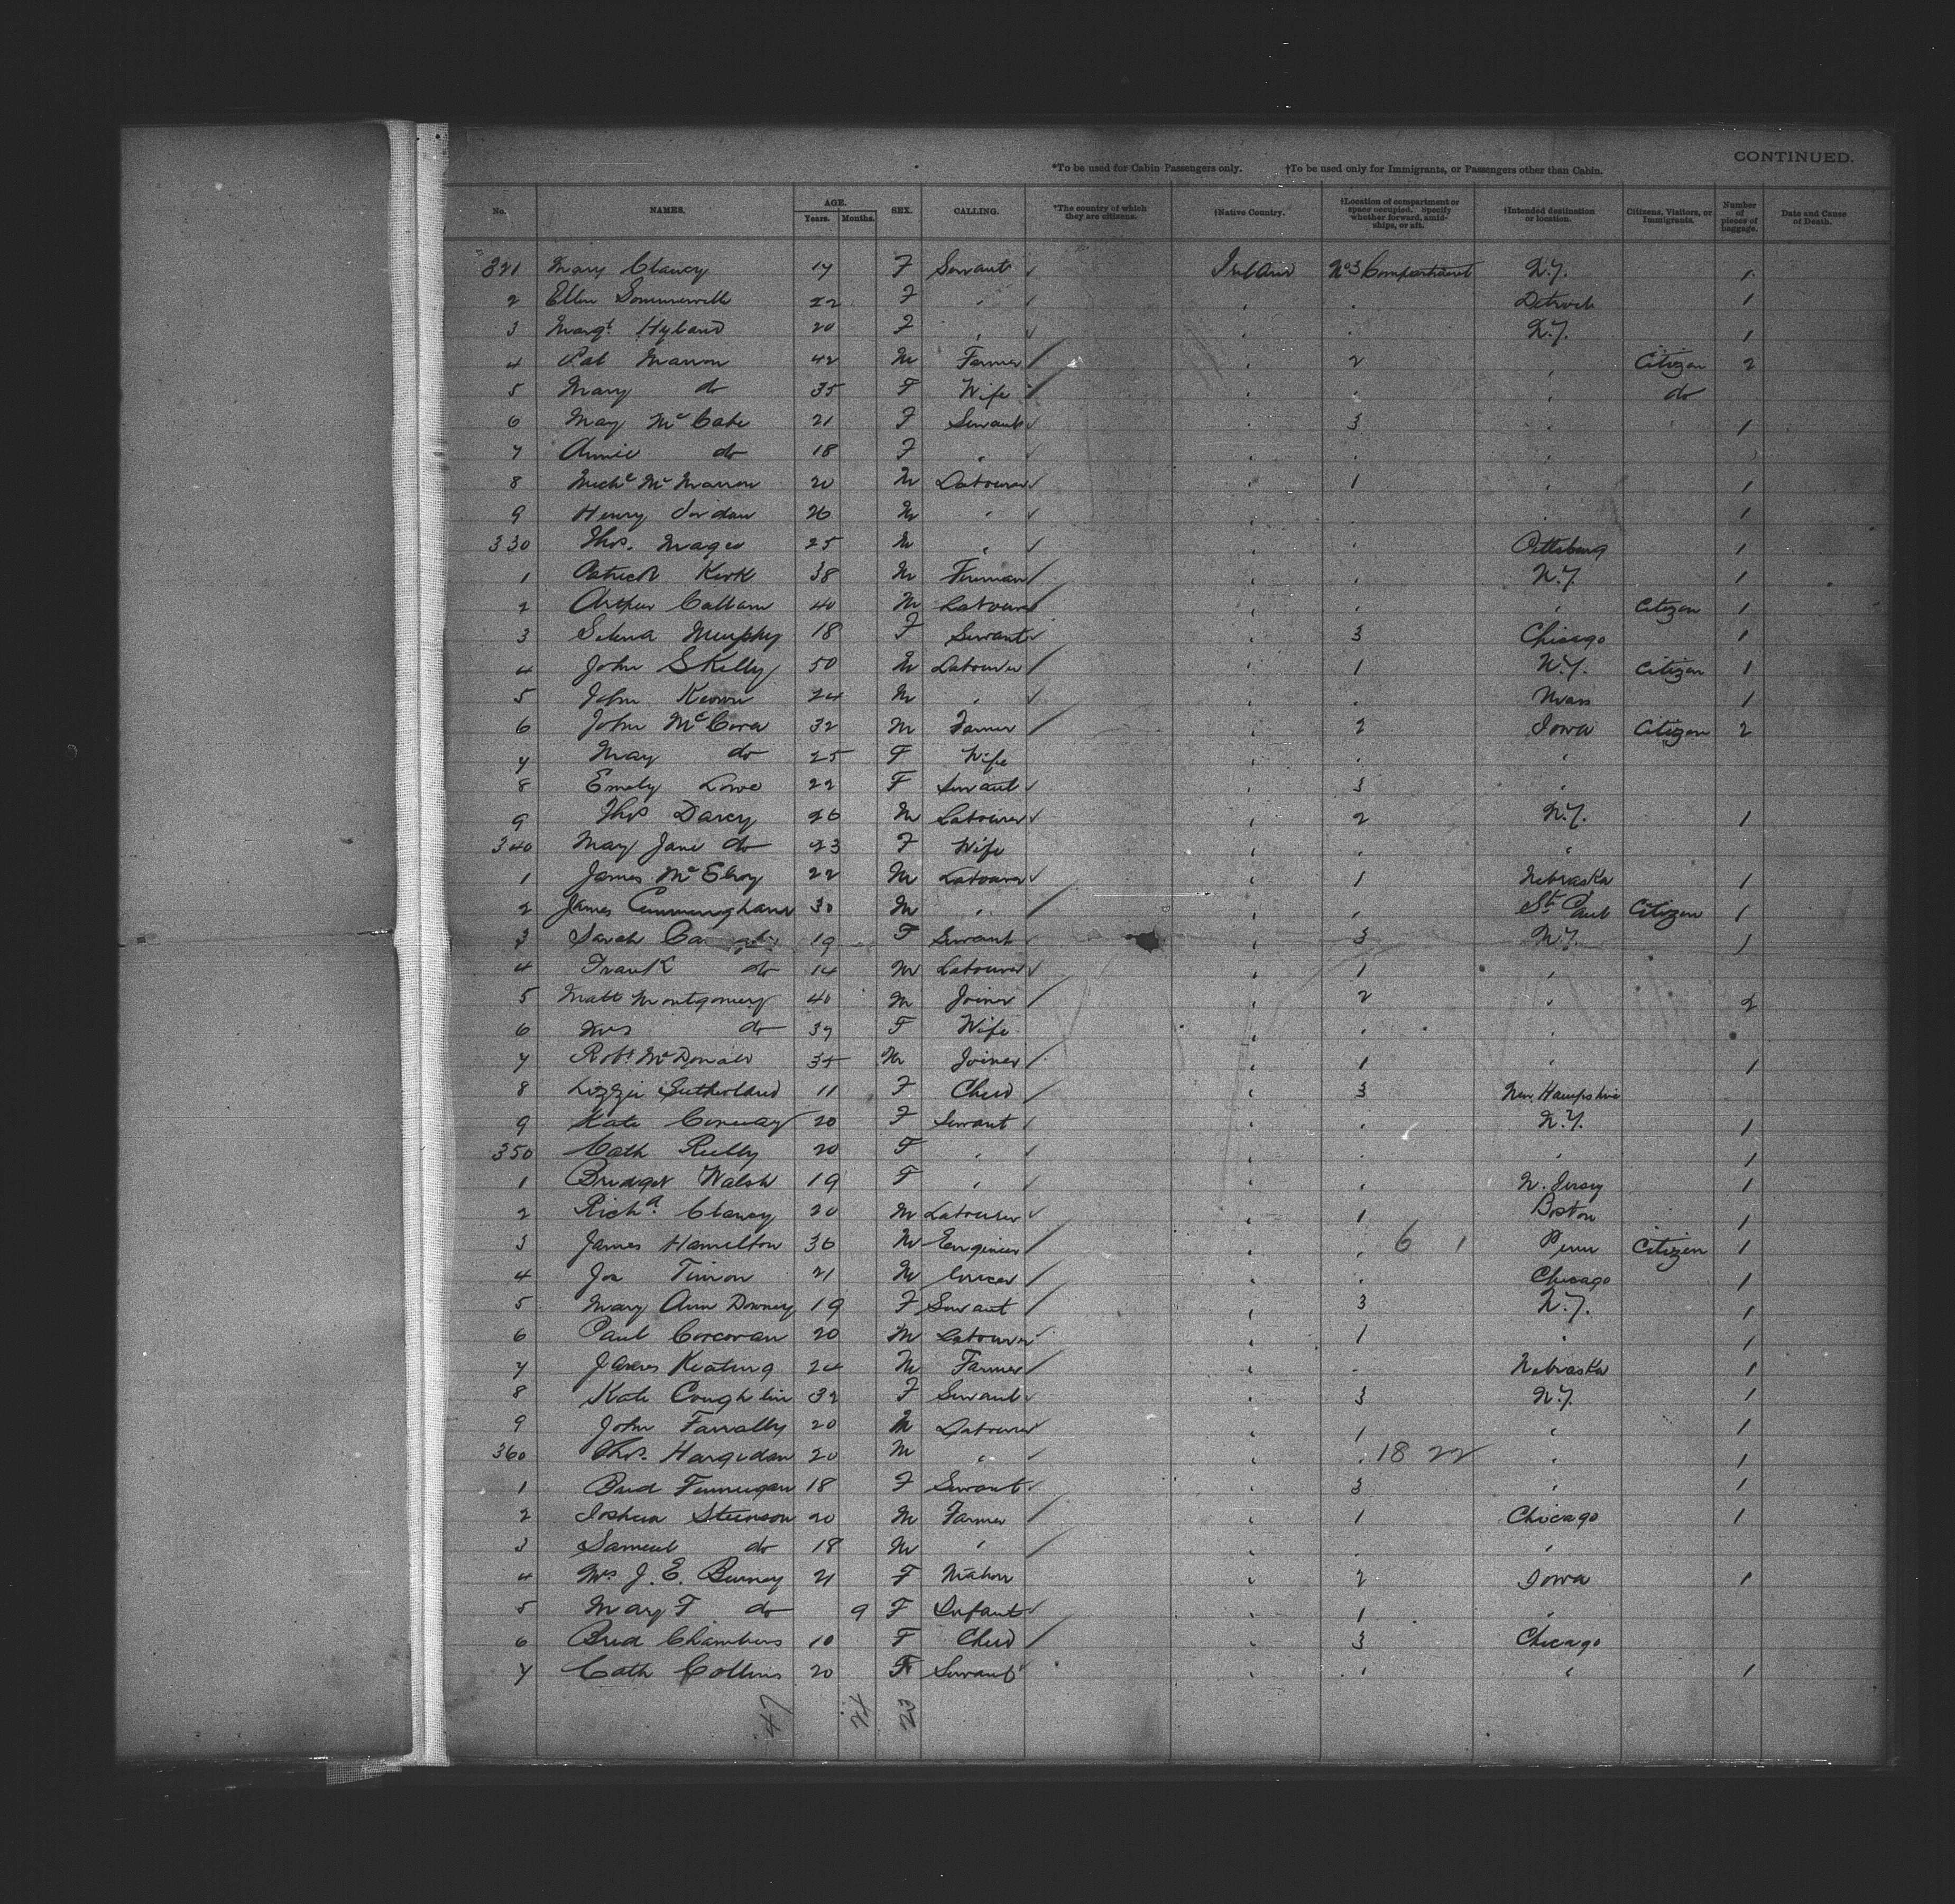 CONTINUED.
*To be used for Cabin Passengers only. †To be used only for Immigrants, or Passengers other than Cabin.
No. NAMES. AGE. Years. Months. SEX. CALLING. *The country of which they are citizens. †Native Country. †Location of compartment or space occupied. Specify whether forward, amidships, or aft. †Intended destination or location. Citizens, Visitors, or Immigrants. Number of pieces of baggage. Date and Cause of Death.
321 Mary Clancy 17 F Servant Ireland No 3 Compartment N.Y. 1
2 Ellen 22 F " " " Detroit 1
3 Margt. Hyland 20 F " " " N.Y. 1
4 Pat Marron 42 M Farmer " 2 " Citizen 2
5 Mary do 35 F Wife " " " do
6 May McCabe 21 F Servant " 3 " 1
7 Annie do 18 F " " " "
8 Michl McMarron 20 M Labourer " 1 " 1
9 Henry Jordan 26 M " " " " 1
330 Thos. Magee 25 M " " " Pittsburg 1
1 Patrick Kirk 38 M Fireman " " N.Y. 1
2 Arthur Callam 40 M Labourer " " " Citizen 1
3 Selina Murphy 18 F Servant " 3 Chicago 1
4 John Skelly 50 M Labourer " 1 N.Y. Citizen 1
5 John Keown 24 M " " " Mass 1
6 John McCora 32 M Farmer " 2 Iowa Citizen 2
7 May do 25 F Wife " " "
8 Emily Lowe 22 F Servant " 3 "
9 Thos Darcy 26 M Labourer " 2 N.Y. 1
340 May Jane do 23 F Wife " " "
1 James McElroy 22 M Labourer " 1 Nebraska 1
2 James Cunningham 30 M " " " St. Paul Citizen 1
3 Sarah 19 F Servant " 3 N.Y. 1
4 Frank do 14 M Labourer " 1 "
5 Matt Montgomery 40 M Joiner " 2 " 2
6 Mrs do 39 F Wife " " "
7 Robt McDonald 35 M Joiner " 1 " 1
8 Lizzie Sutherland 11 F Child " 3 New Hampshire
9 Kate Conway 20 F Servant " " N.Y. 1
350 Cath Reilly 20 F " " " " 1
1 Bridget Walsh 19 F " " " N. Jersey 1
2 Richd. Clancy 20 M Labourer " 1 Boston 1
3 James Hamilton 36 M Engineer " " 6 1 Penn Citizen 1
4 Jos Timon 21 M Grocer " " Chicago 1
5 Mary Ann Downey 19 F Servant " 3 N.Y. 1
6 Paul Corcoran 20 M Labourer " 1 " 1
7 James Keating 24 M Farmer " " Nebraska 1
8 Kate Coughlin 32 F Servant " 3 N.Y. 1
9 John Farrally 20 M Labourer " 1 " 1
360 Thos. Hargedan 20 M " " " 18 22 " 1
1 Brid Finnegan 18 F Servant " 3 " 1
2 Joshua Steenson 20 M Farmer " 1 Chicago 1
3 Samuel do 18 M " " " "
4 Mrs J. E. Burney 21 F Matron " 2 Iowa 1
5 Mary F do 9 F Infant " 1 "
6 Brid Chambers 10 F Child " 3 Chicago
7 Cath Collins 20 F Servant " " " 1
47 24 23